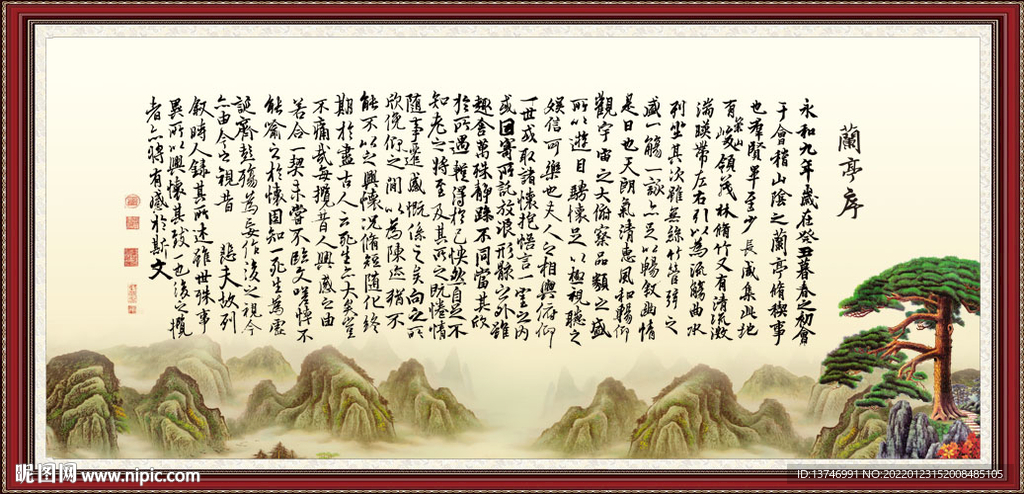 蘭亭序
永和九年歲在癸丑暮春之初會
于會稽山陰之蘭亭脩稧事
也羣賢畢至少長咸集此地
有崇山峻領茂林脩竹又有清流激
湍暎帶左右引以為流觴曲水
列坐其次雖無絲竹管弦之
盛一觴一詠亦足以暢敘幽情
是日也天朗氣清惠風和暢仰
觀宇宙之大俯察品類之盛
所以遊目騁懷足以極視聽之
娛信可樂也夫人之相與俯仰
一世或取諸懷抱悟言一室之內
或因寄所託放浪形骸之外雖
趣舍萬殊靜躁不同當其欣
於所遇蹔得於己怏然自足不
知老之將至及其所之既惓情
隨事遷感慨係之矣向之所
欣俛仰之間以為陳迹猶不
能不以之興懷況脩短隨化終
期於盡古人云死生亦大矣豈
不痛哉每攬昔人興感之由
若合一契未嘗不臨文嗟悼不
能喻之於懷固知一死生為虛
誕齊彭殤為妄作後之視今
亦由今之視昔 悲夫故列
敘時人錄其所述雖世殊事
異所以興懷其致一也後之攬
者亦將有感於斯文
昵图网 www.nipic.com
ID:13746991 NO:20220123152008485105